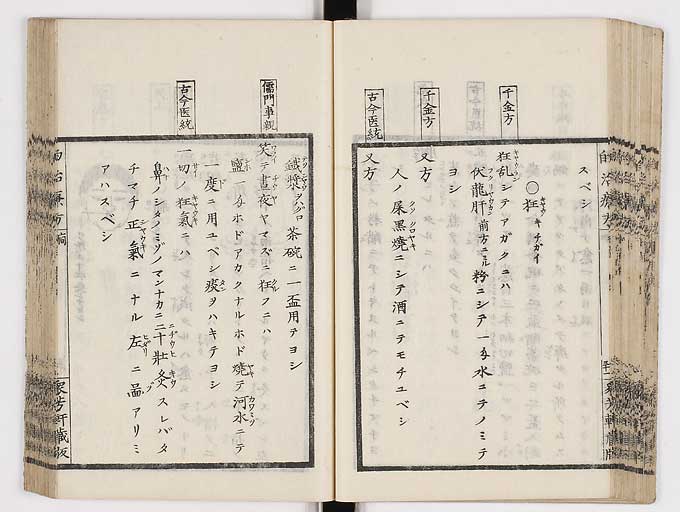 スベシ
千金方
○狂 キヤウ キチガイ
狂乱シテアガクニハ
伏龍肝 前方ニ出ル 粉ニシテ一匁水ニテノミテ
ヨシ
千金方
又方
人ノ屎黒焼ニシテ酒ニテモチユベシ
古今医統
又方
鐵漿 ハグロ 茶碗ニ一盃用テヨシ
儒門事親
笑テ昼夜ヤマズニ狂フニハ
鹽一匁ホドアカクナルホド焼テ河水ニテ
一度ニ用ユベシ痰ヲハキテヨシ
古今医統
一切ノ狂氣ニハ
鼻ノシタノミゾノマンナカニ二十壮灸スレバタ
チマチ正氣ニナル左ニ圖アリミ
アハスベシ
自治療方
衆芳軒蔵板